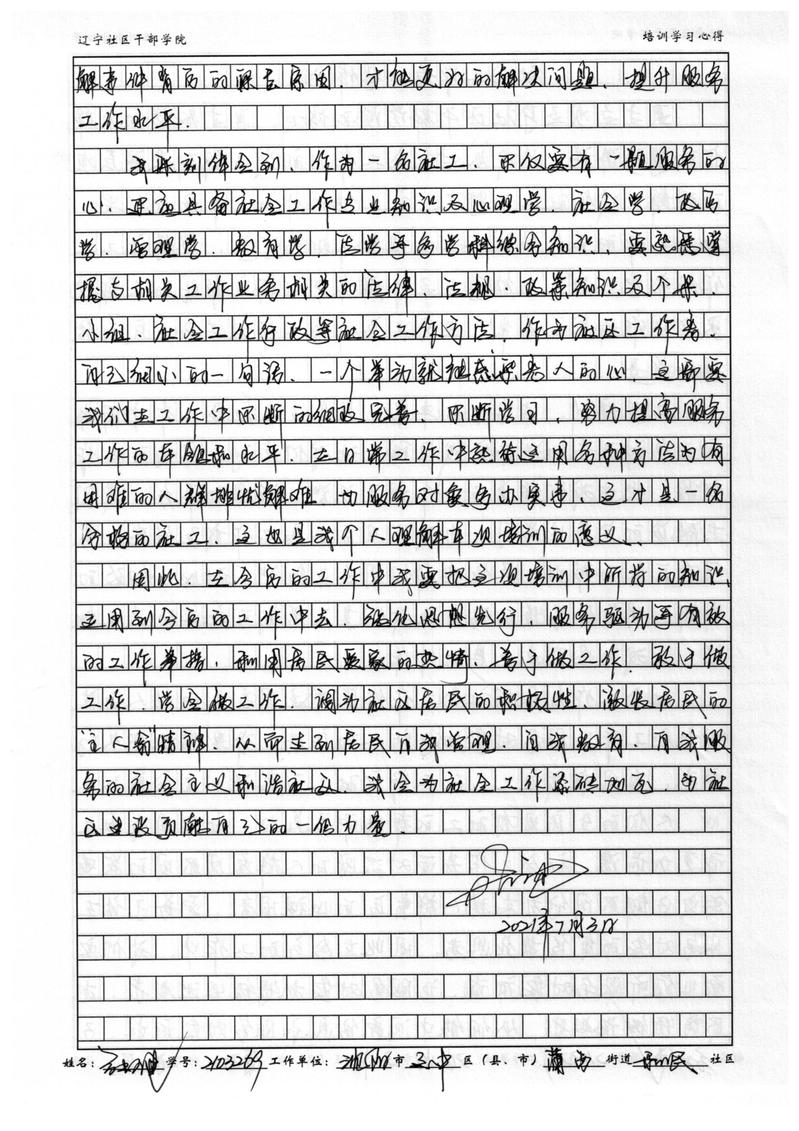 辽宁社区干部学院 培训学习心得
解事件背后的深层原因，才能更好的解决问题，提升服务
工作水平。
我深刻体会到，作为一名社工，不仅要有一颗服务的
心，更应具备社会工作专业知识及心理学、社会学、政治
学、管理学、教育学、法学等多学科综合知识，需要掌
握与相关工作业务相关的法律、法规、政策知识及个案、
小组、社会工作行政等社会工作方法，作为社区工作者，
的一句话，一个举动就能感染人的心，这都要
我们在工作中不断的细致完善，不断学习，努力提高服务
工作的本领和水平。在日常工作中运用各种方法为有
困难的人群排忧解难，为服务对象多办实事，这才是一名
合格的社工，这也是我个人理解本次培训的意义。
因此，在今后的工作中我要把这次培训中所学的知识
运用到今后的工作中去，强化思想先行，服务驱动等有效
的工作举措，利用居民的热情，善于做工作，敢于做
工作，学会做工作，调动社区居民的积极性，激发居民的
“主人翁”精神，从而达到居民自我管理，自我教育，自我服
务的社会主义和谐社区。我会为社会工作添砖加瓦，为社
区建设贡献自己的一份力量。
2021年7月3日
姓名： 学号：2103269 工作单位：沈阳 市 区（县、市） 街道 社区